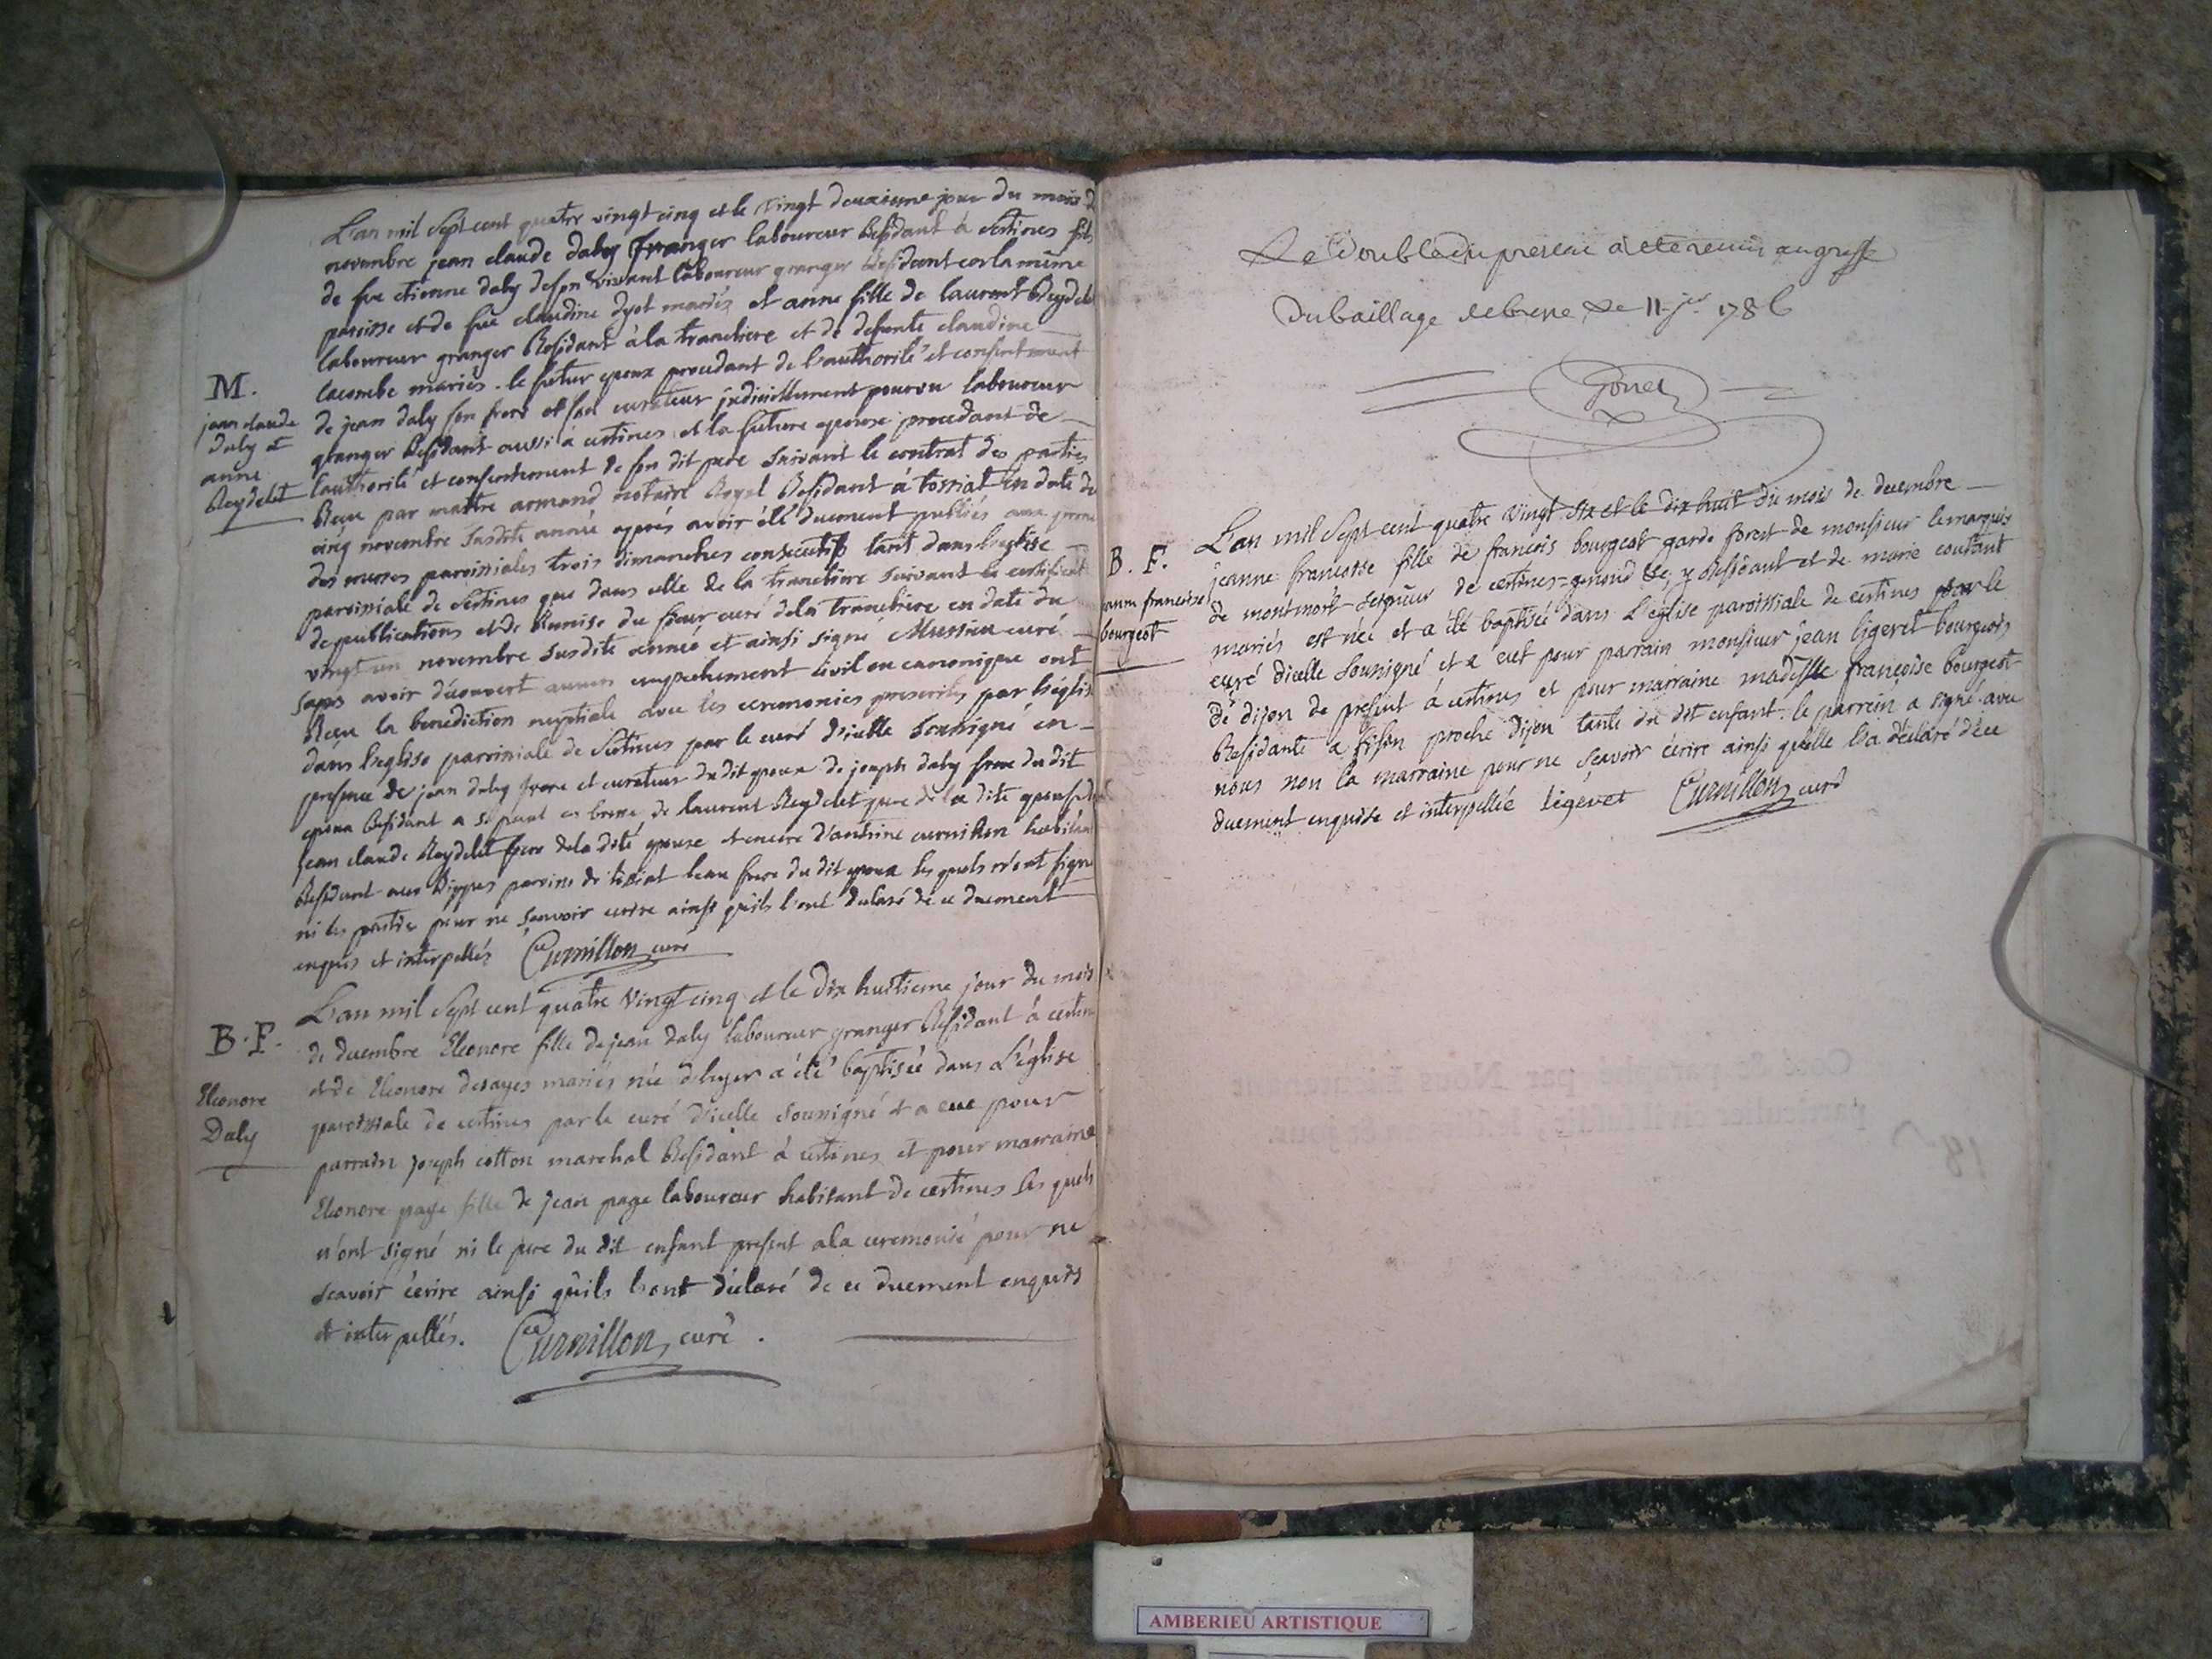 L'an mil sept cent quatre vingt cinq et le vingt deuxieme jour du mois de
novembre jean claude daly granger laboureur Residant à Sertines fils
de feu etienne daly de son vivant laboureur granger Residant en la même
paroisse et de fue claudine dyot mariés et anne fille de laurent Reydelet
laboureur granger Residant à la tranchiere et de defunte claudine
lacombe mariés. le futur epoux procedant de l'authorité et consentement
M.
jean claude
daly et
anne
Reydelet
de jean daly son frere et son curateur judiciellement pourvu laboureur
granger Residant aussi à certines et la future epouse procedant de
l'authorité et consentement de son dit pere suivant le contrat des parties
Reçu par maitre armand notaire Royal Residant à tossiat en date du
cinq novembre susdite année apprés avoir été duement publiés aux prone
des messes paroissiales trois dimanches consecutifs tant dans l'eglise
paroissiale de Sertines que dans celle de la tranchiere suivant le certificat
de publications et de Remise du sieur curé de la tranchiere en date du
vingt un novembre susdite année et ainsi signé curé
sans avoir découvert aucun empechement civil ou canonique ont
Reçu la benediction nuptiale avec les ceremonies prescrites par l'églis
dans l'eglise paroissiale de Sertines par le curé d'icelle soussigné en
presence de jean daly frere et curateur du dit epoux de joseph daly frere du dit
epoux Residant a st paul en bresse, de laurent Reydelet pere de la dite epouse, de
jean claude Reydelet frere de la dite epouse et encore d'antoine curnillon habitant
Residant aux Rippes paroisse de tossiat beau frere du dit epoux les quels n'ont signé
ni les parties pour ne sçavoir ecrire ainsi qu'ils l'ont declaré de ce duement
enquis et interpellés Curnillon curé
B. F.
Eleonore
Daly
L'an mil sept cent quatre vingt cinq et le dix huitieme jour du mois
de decembre Eleonore fille de jean daly laboureur granger Residant à certines
et de Eleonore desayes mariés née d'hyer a été baptisée dans L'église
paroissiale de certines par le curé d'icelle soussigné et a eue pour
parrain joseph cotton marchal Residant à certines et pour marraine
Eleonore page fille de jean page laboureur habitant de certines les quels
n'ont signé ni le pere du dit enfant present a la ceremonie pour ne
sçavoir écrire ainsi qu'ils l'ont déclaré de ce duement enquis
et interpellés. Curnillon curé.
Le double du present a ete remis au greffe
du baillage de bresse le 11 jer 1786
Gonet
B. F.
jeanne francoise
bourgeot
L'an mil sept cent quatre vingt six et le dix huit du mois de decembre
jeanne francoise fille de francois bourgeot garde forest de monsieur le marquis
de montmort seigneur de certines genoud &c, y Residant et de marie coutant
mariés est née et a été baptisée dans L'eglise paroissiale de certines par le
curé dicelle soussigné et a eut pour parrain monsieur jean ligeret bourgeois
de dijon de present à certines et pour marraine madslle françoise bourgeot
Residante a proche dijon tante du dit enfant. le parrein a signé avec
nous non la marraine pour ne sçavoir écrire ainsi qu'elle l'a déclaré d'ece
duement enquise et interpellée Ligeret Curnillon curé
AMBERIEU ARTISTIQUE